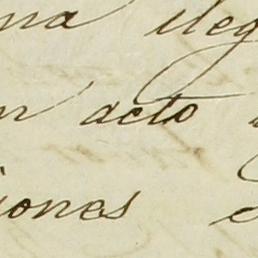 ma ileg
n acto
iones